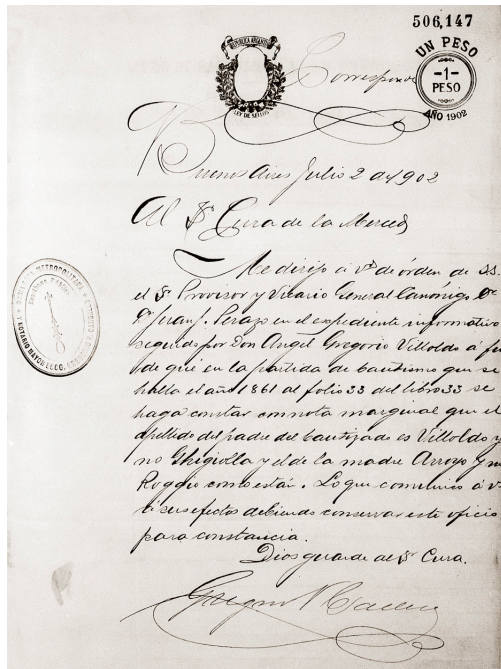 506,147
REPUBLICA ARGENTINA
LEY DE SELLOS
UN PESO
-1-
PESO
AÑO 1902
Corresponde
Buenos Aires Julio 2 de 1902
Al Sr Cura de la Merced
Me dirijo á Vd de órden de SS.
el Sr Provisor y Vicario General Canónigo Dr
Dn Franf. Perazo en el expediente informativo
seguido por Don Angel Gregorio Villoldo á fin
de que en la partida de bautismo que se
halla el año 1861 al folio 33 del libro 33 se
haga constar con nota marginal que el
apellido del padre del bautizado es Villoldo y
no Ghigiolla y el de la madre Arroyo y no
Roggio como están. Lo que comunico á V.
á sus efectos debiendo conservar este oficio
para constancia.
Dios guarde al Sr Cura.
Gregorio